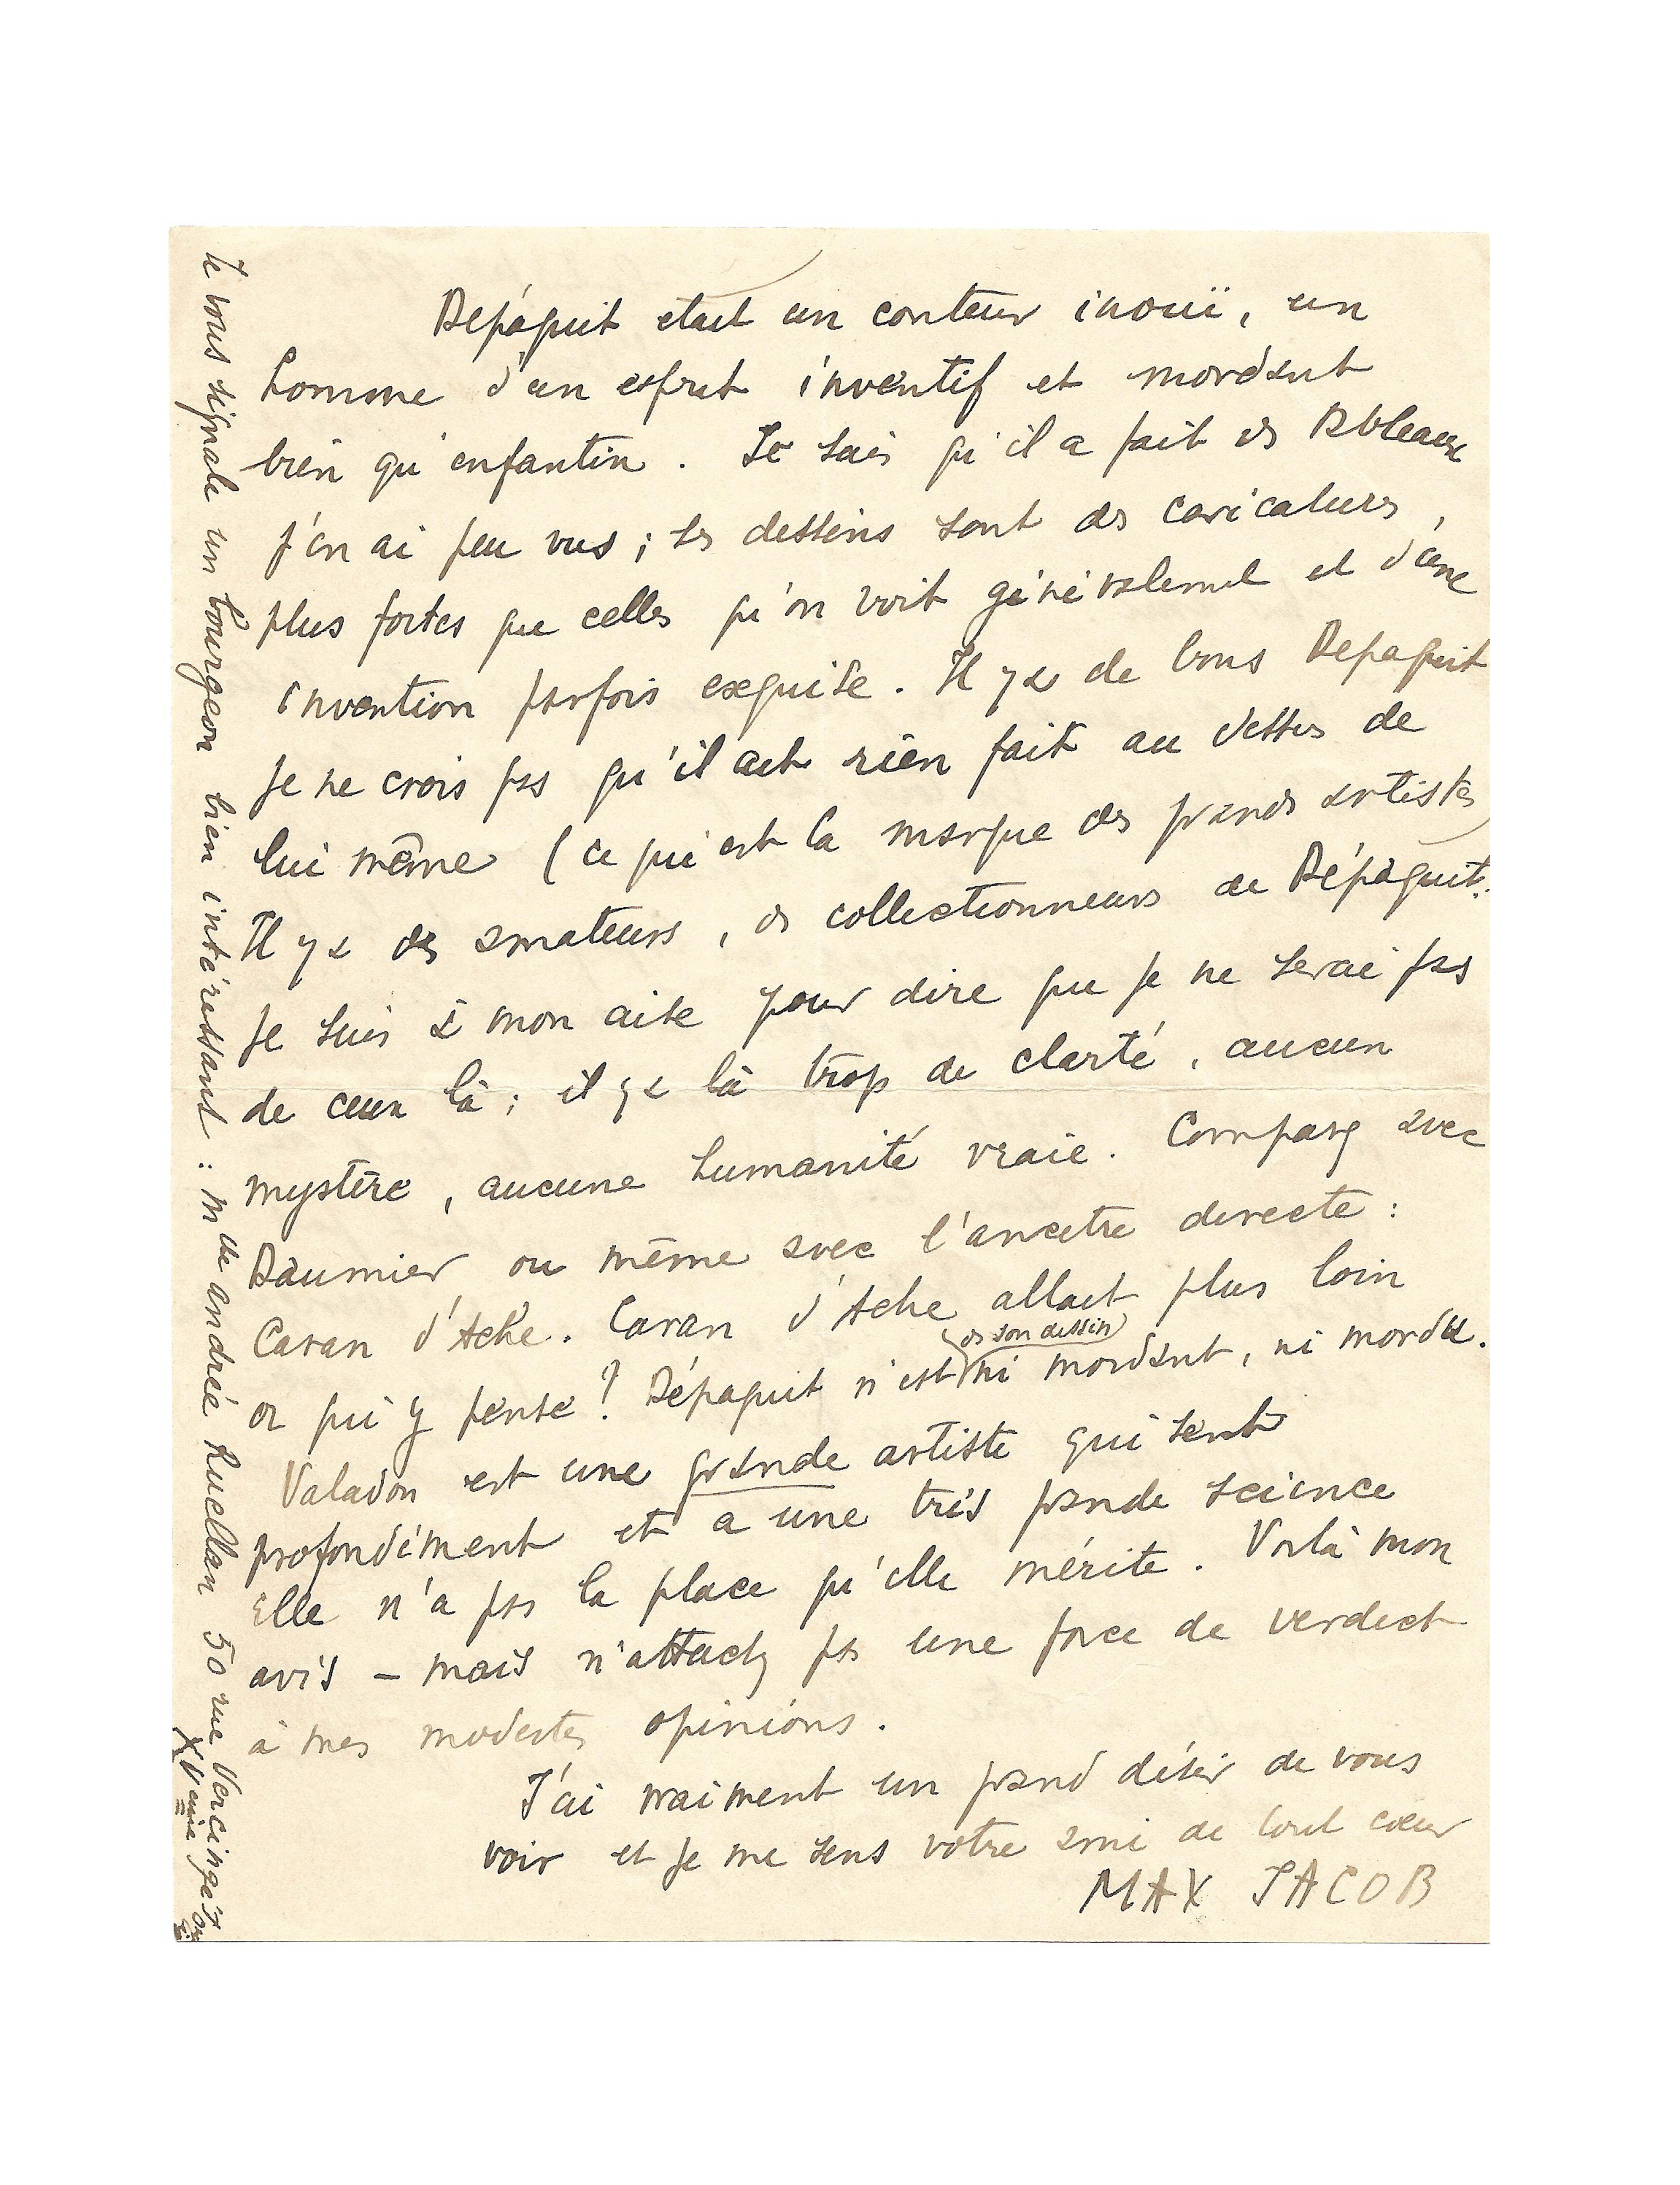 Dépaquit etait un conteur inouï, un
homme d'un esprit inventif et mordant
bien qu'enfantin. Je sais qu'il a fait des tableaux
j'en ai peu vus ; ses dessins sont des caricatures,
plus fortes que celles qu'on voit généralement et d'une
invention parfois exquise. Il y a de bons Depaquit
je ne crois pas qu'il ait rien fait au dessus de
lui même (ce qui est la marque des grands artistes
Il y a des amateurs, des collectionneurs de Dépaquit.
Je suis à mon aise pour dire que je ne serai pas
de ceux là ; il y a là trop de clarté, aucun
mystère, aucune humanité vraie. Comparez avec
Daumier ou même avec l'ancetre directe :
Caran d'Ache. Caran d'Ache allait plus loin
ds son dessin
or qui y pense ? Dépaquit n'est ni mordant, ni mordu.
Valadon est une grande artiste qui sent
profondément et a une très grande science
Elle n'a pas la place qu'elle mérite. Voilà mon
avis – mais n'attachez pas une force de verdict
à mes modestes opinions.
J'ai vraiment un grand désir de vous
voir et je me sens votre ami de tout cœur
MAX JACOB
Je vous signale un bourgeon bien intéressant : Mlle andrée Ruellan 50 rue Vercingétorix
XVeme